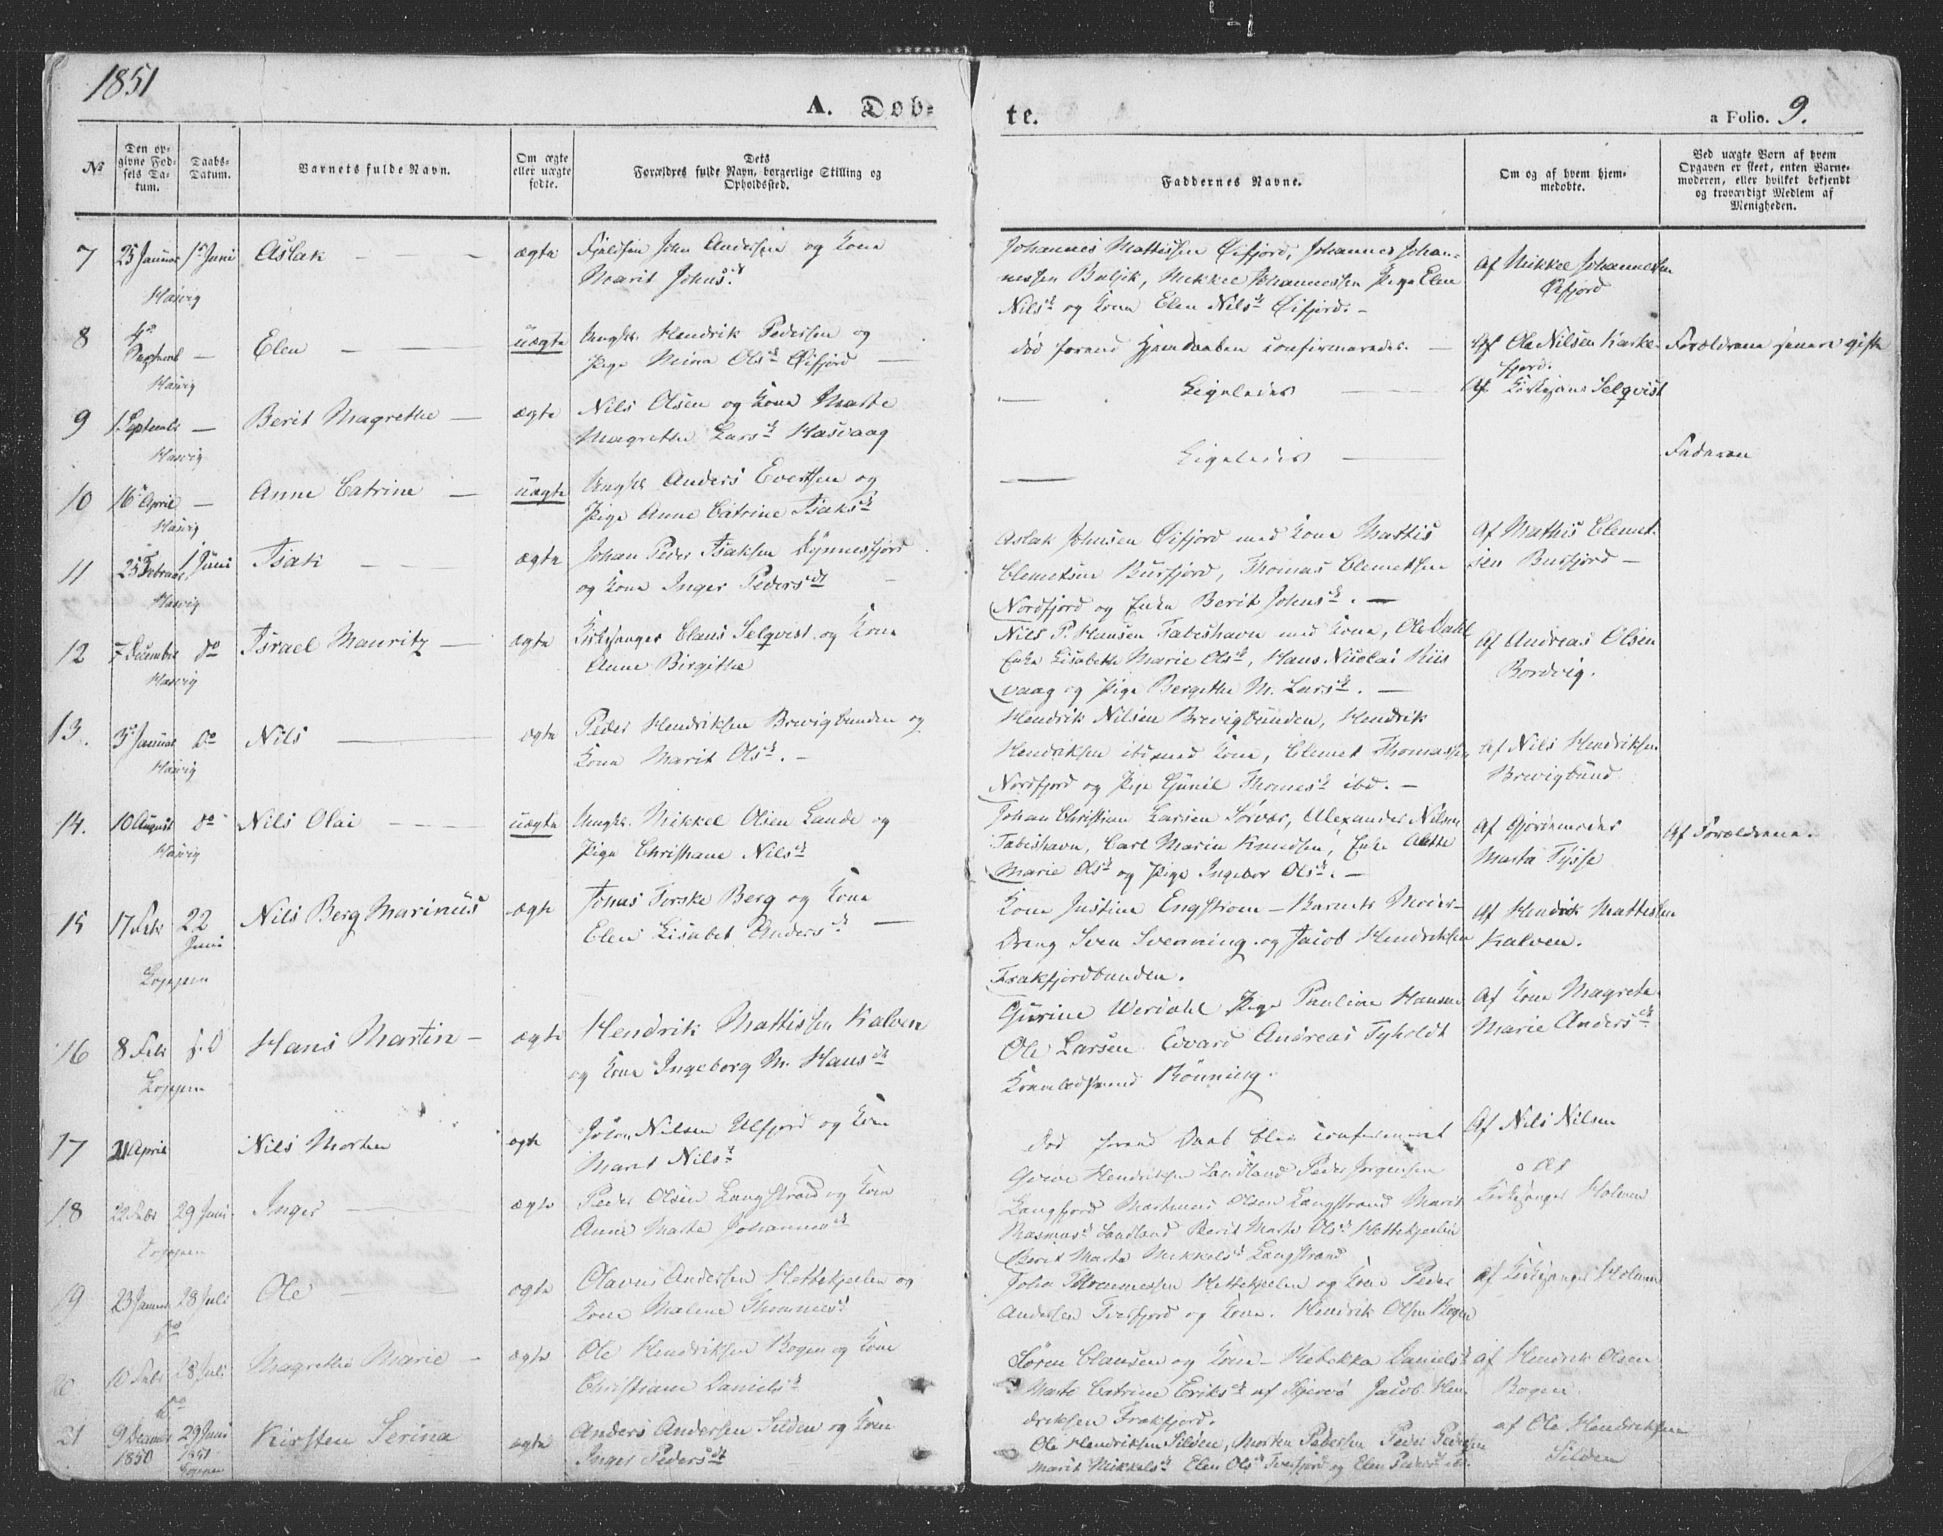 1851
A. Døb-
te.
a Folio. 9.
No
Den op-
givne Fød-
sels Da-
tum.
Daabs-
Datum.
Barnets fulde Navn.
Om ægte
eller uægte
fødte.
Dets
Forældres fulde Navn, borgerlige Stilling og
Opholdssted.
Faddernes Navne.
Om og af hvem hjem-
medøbte.
Ved uægte Børn af hvem
Opgaven er skeet, enten Barne-
moderen, eller hvilket bekjendt
og troværdigt Medlem af
Menigheden.
7 25 Januar 1ste Juni Aslak ægte Fjeldfin John Andersen og Kone
Hasvig
Marit Johnsdt.
Johannes Mattissen Øifjord, Johannes Johan-
nessen Mikkel Johannessen Pige Elen
Nilsdt og Kone Elen Nilsdt Øifjord. -
Af Mikkel Johannessen
Øifjord
8 4de
Septembr - Elen - uægte Ungkl. Hendrik Pedersen og
Hasvig
Pige Nina Olsdt Øifjord
død forend Hjemdaaben confirmeredes.
Af Ole Nilsen Karke-
fjord.
Forældrene senere gifte
9 1 Septembr - Berit Magrethe - ægte Nils Olsen og Kone Marte
Hasvig
Magrethe Larsdt Hasvaag
Ligeledes
Af Kirkesang. Selqvist
10 16 April - Anne Catrine - uægte Ungkl. Anders Evertsen og
Hasvig
Pige Anne Catrine Isaksdt
Ligeledes
Faderen
11 25 Februar 1 Juni Isak - ægte Johan Peder Isaksen Dønnesfjord
Hasvig
og Kone Inger Pedersdt
Aslak Johnsen Øifjord med Kone Mattis
Clemetsen Bursfjord, Thomas Clemetsen
Nordfjord og Enke Berit Johnsdt. -
Af Mathis Clemet-
sen Bursfjord -
12 7 December do Israel Mauritz - ægte Kirkesanger Claus Selqvist og Kone
Hasvig
Anne Birgithe
Nils P. Hansen Fabeshavn med Kone, Ole Dahl
Enke Lisabeth Marie Olsdt, Hans Nicolai Riis
vaag og Pige Bergethe M. Larsdt. -
Af Andreas Olsen
Bordvig.
13. 3 Januar do Nils - ægte Peder Hendriksen Brevigbunden og
Hasvig
Kone Marit Olsdt. -
Hendrik Nilsen Brevigbunden, Hendrik
Hendriksen ibd med Kone, Clemet Thomassen
Nordfjord og Pige Gunil Thomasdt ibd. -
Af Nils Hendriksen
Brevigbund
14. 10 August do Nils Olai - uægte Ungkl. Mikkel Olsen Lande og
Hasvig
Pige Christiane Nilsdt
Johan Christian Larsen Sørvær, Alexander Nilsen
Fabeshavn, Carl Marin Knudsen, Enke Alette
Marie Olsdt og Pige Ingebor Olsdt. -
Af Gjordemoder
Marta Tysse
Af Forældrene.
15 17 Febr 22 Nils Berg Marinus ægte Jonas Torske Berg og Kone
Juni
Loppen
Elen Lisabet Andersdt -
Kone Justine Engstrom - Barnets Moder -
Dreng Sven Svenning og Jacob Hendriksen
Frakfjordbunden.
Af Hendrik Mattissen
Kalven.
16 8 Febr s. D Hans Martin - ægte Hendrik Mattissen Kalven
Loppen
og Kone Ingeborg M. Hansdt
Gurine Werdahl Pige Pauline Hansen
Ole Larsen Edvard Andreas Tyholdt
Rönning.
Af Kone Magreta
Marie Andersdt
17 21 April Nils Morten ægte John Nilsen Ulfjord og Kone
Marit Nilsdt
død forend Daab blev confirmeret
Af Nils Nilsen
18 22 Febr 29 Juni Inger - ægte Peder Olsen Langstrand og Kone
Loppen
Anne Marta Johannesdt
Hendriksen Sandland Peder Jørgensen
Langfjord Martinus Olsen Langstrand Marit
Rasmusdt Sandland Berit Marte Olsdt Mettekjeilen
Berit Marta Mikkelsdt Langstrand
Kirkesanger Holum
19 23 Januar 28 Juli Ole - ægte Olavus Andersen Mettekjeilen og
do
Kone Malene Thommesdt
John Thommessen Mettekjeilen og Kone Peder
Andersen Tverfjord og Kone. Hendrik Olsen Bogen
af Kirkesanger Holum
20 10 Febr 28 Juli Magrethe Marie - ægte Ole Hendriksen Bogen og Kone
do
Christiane Danielsdt
Søren Clausen og Kone - Rebekka Danielsdt
Marte Catrine Eriksdt af Skjervø Jacob Hen-
driksen Frakfjord.
af Hendrik Olsen
Bogen.
21 9 Decembr 29 Juni Kirsten Serina ægte Anders Andersen Silden og Kone
1850 1851
Loppen
Inger Pedersdt
Ole Hendriksen Silden, Morten Pedersen Peder Pedersen
Marit Mikkelsdt Elen Olsdt Tverfjord og Elen Pedersdt ibd.
af Ole Hendriksen
Silden